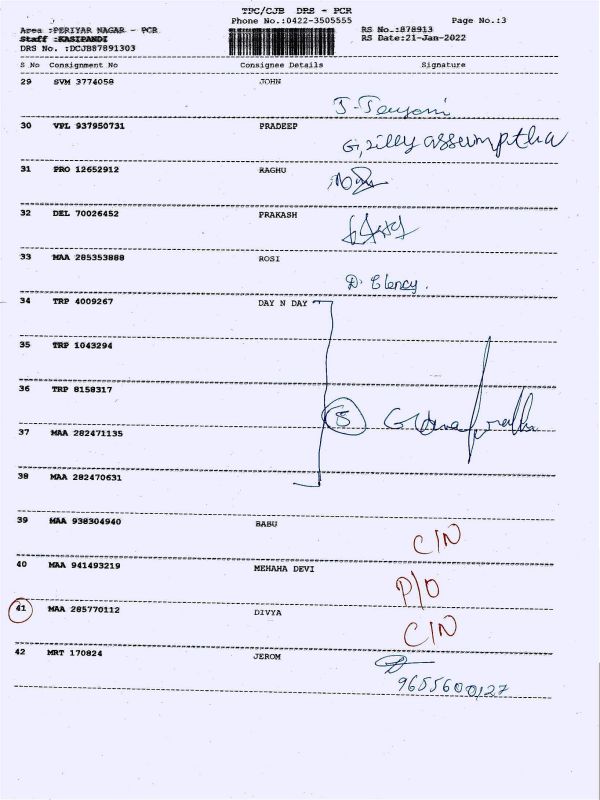 TPC/CJB DRS - PCR
Phone No.:0422-3505555 Page No.:3
Area :PERIYAR NAGAR - PCR RS No.:878913
Staff :KASIPANDI RS Date:21-Jan-2022
DRS No. :DCJB87891303
S No Consignment No Consignee Details Signature
29 SVM 3774058 JOHN
30 VPL 937950731 PRADEEP
G, silley assumptha
31 PRO 12652912 RAGHU
32 DEL 70026452 PRAKASH
33 MAA 285353888 ROSI
D. Elency.
34 TRP 4009267 DAY N DAY
35 TRP 1043294
36 TRP 8158317
5
37 MAA 282471135
38 MAA 282470631
39 MAA 938304940 BABU
C/N
40 MAA 941493219 MEHAHA DEVI
P/O
41 MAA 285770112 DIVYA
C/N
42 MRT 170824 JEROM
9655600127